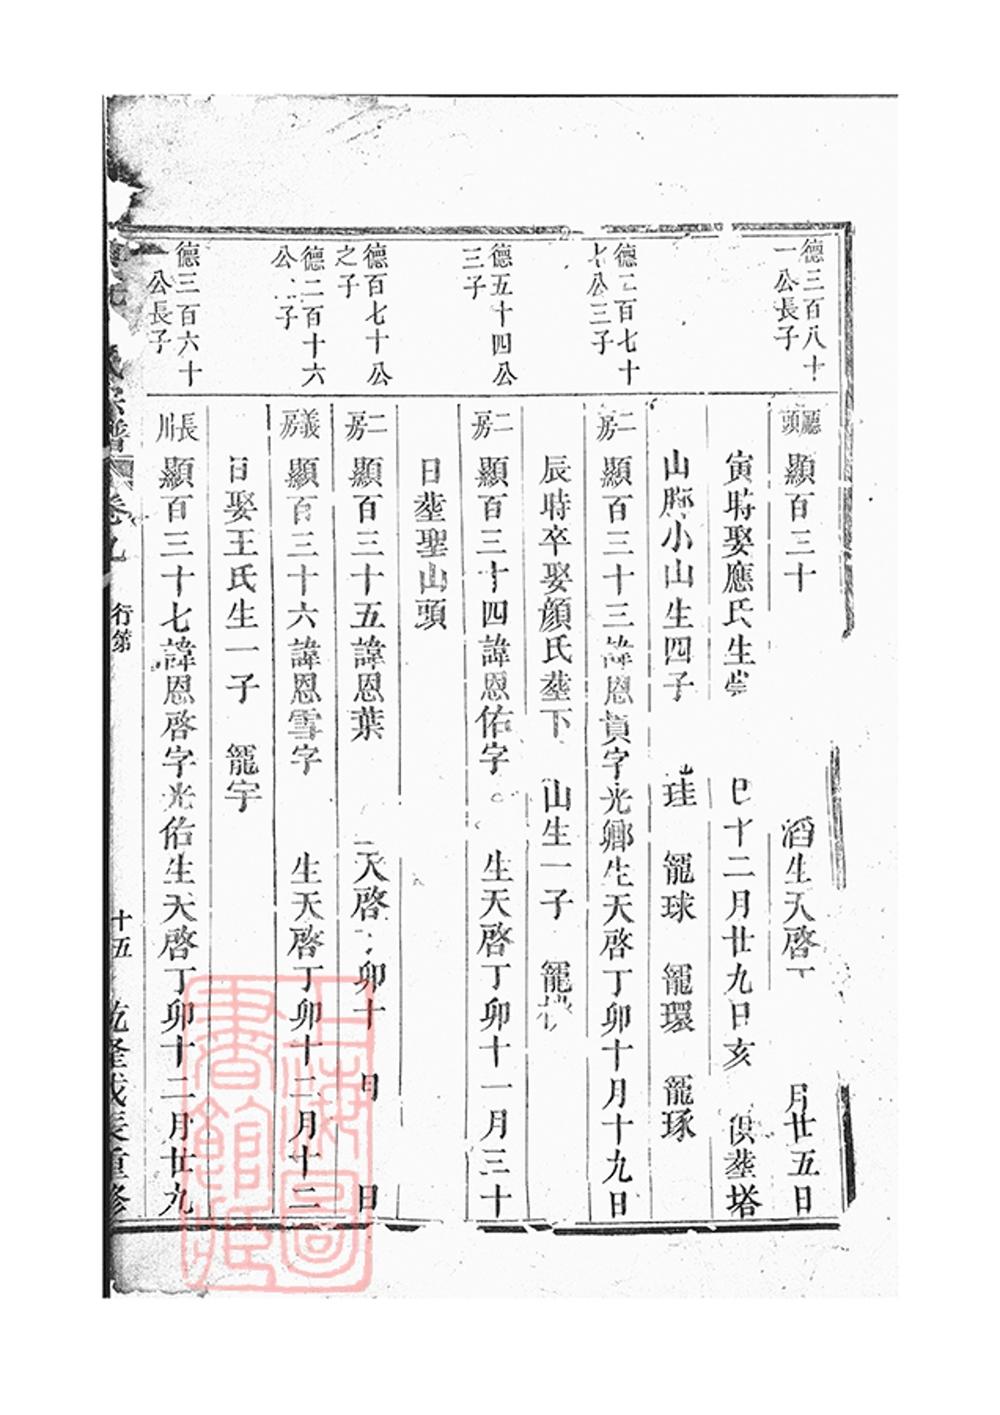 德三百八十
一公長子
廳頭
顯百三十
滔生天啓
月廿五日
寅時娶應氏生
巳十二月廿九日亥
俱塟塔
山脚小山生四子
珪
籠球
籠環
籠琢
德二百七十
七公三子
二房
顯百三十三諱恩貢字光鄉生天啓丁卯十月十九日
辰時卒娶顔氏塟下
山生一子
籠
德五十四公
三子
二房
顯百三十四諱恩佑字
生天啓丁卯十一月三十
日塟聖山頭
德百七十公
之子
二房
顯百三十五諱恩葉
天啓
卯十
月
日
德二百十六
公二子
義房
顯百三十六諱恩雪字
生天啓丁卯十二月十二
日娶王氏生一子
籠宇
德三百六十
一公長子
長川
顯百三十七諱恩啓字光佑生天啓丁卯十二月廿九
氏宗譜
卷九
行第
十五
乾隆戊辰重修
上海圖書館藏